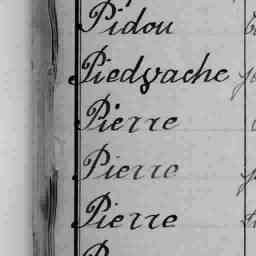 Pidou
Piedvache
Pierre
Pierre
Pierre